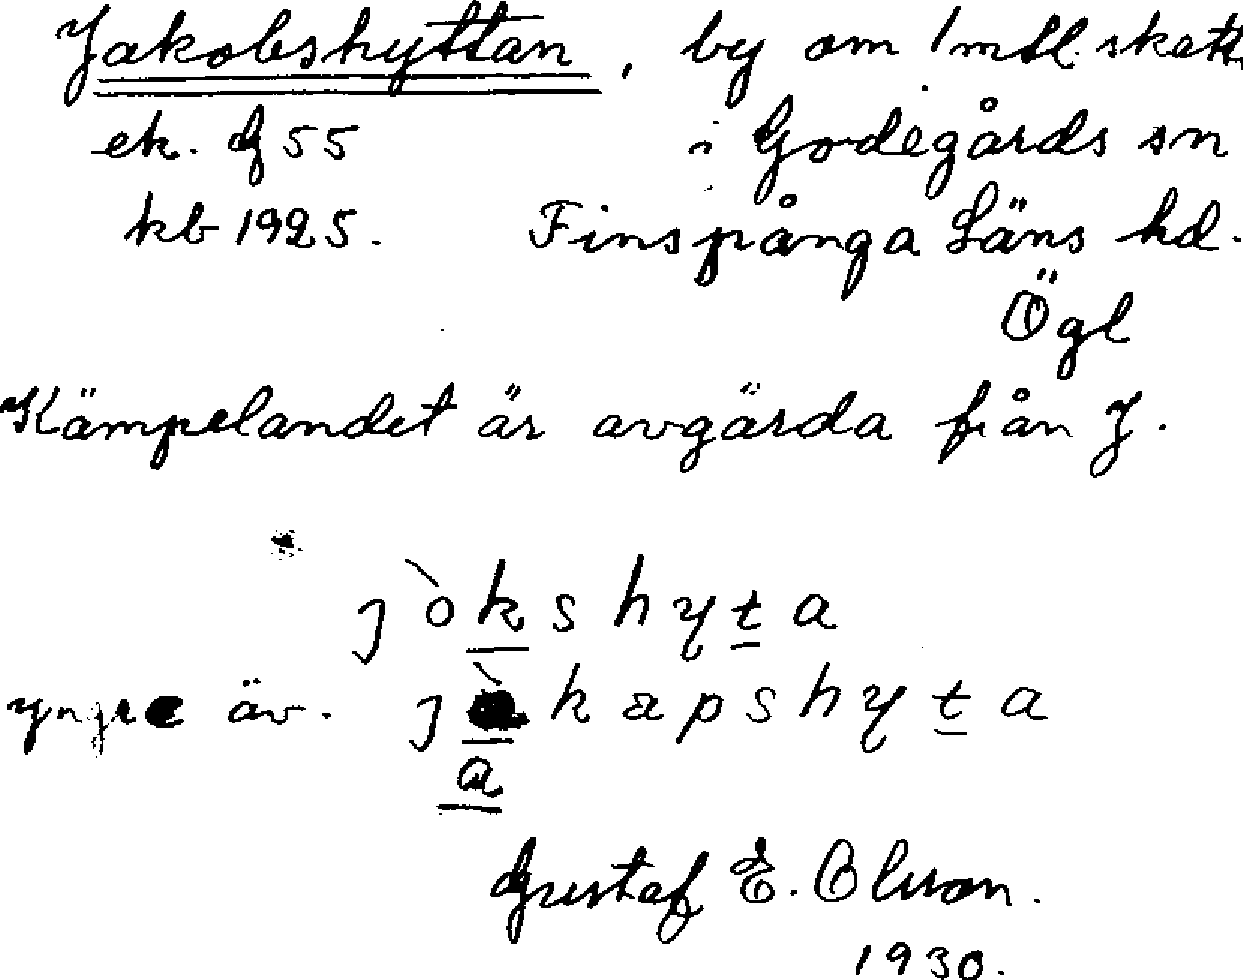 Jakobshyttan, by om 1 mtl. skatt
ek. G 55 i Godegårds sn
kb 1925. Finspånga Läns hd.
Ögl
Kämpelandet är avgärda från J.
jòkshyta
yngre äv. j kapshyta
a
Gustaf E. Olsson.
1930.